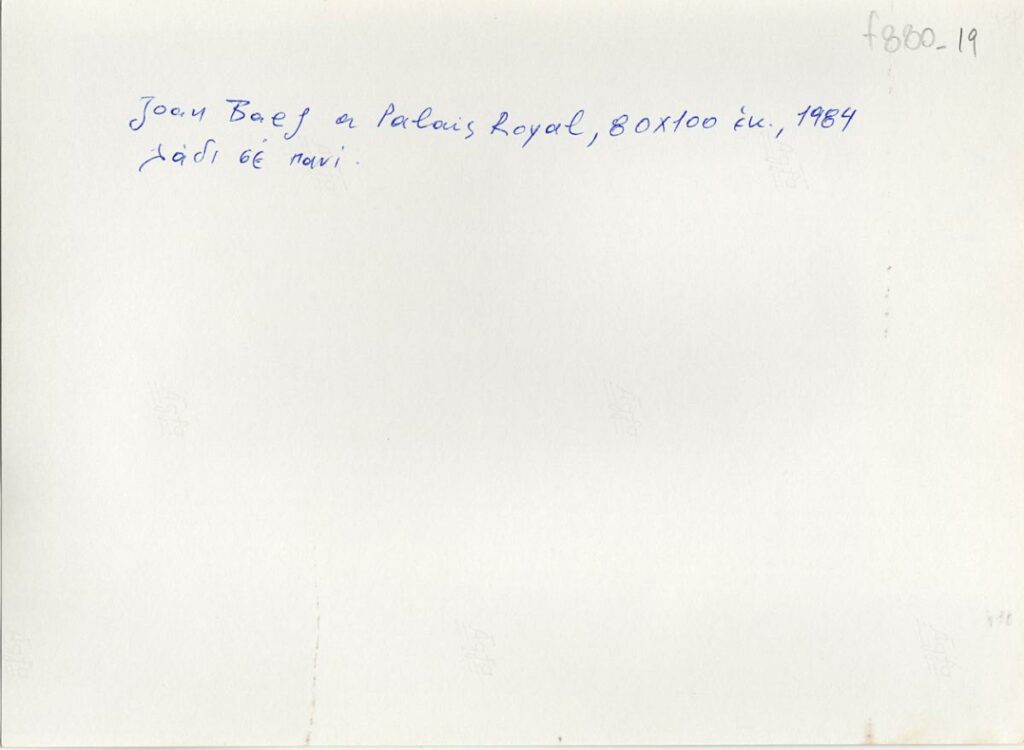 f880-19
Joan Baez a Palais Royal, 80x100 ἑκ., 1984
λάδι σέ πανί.